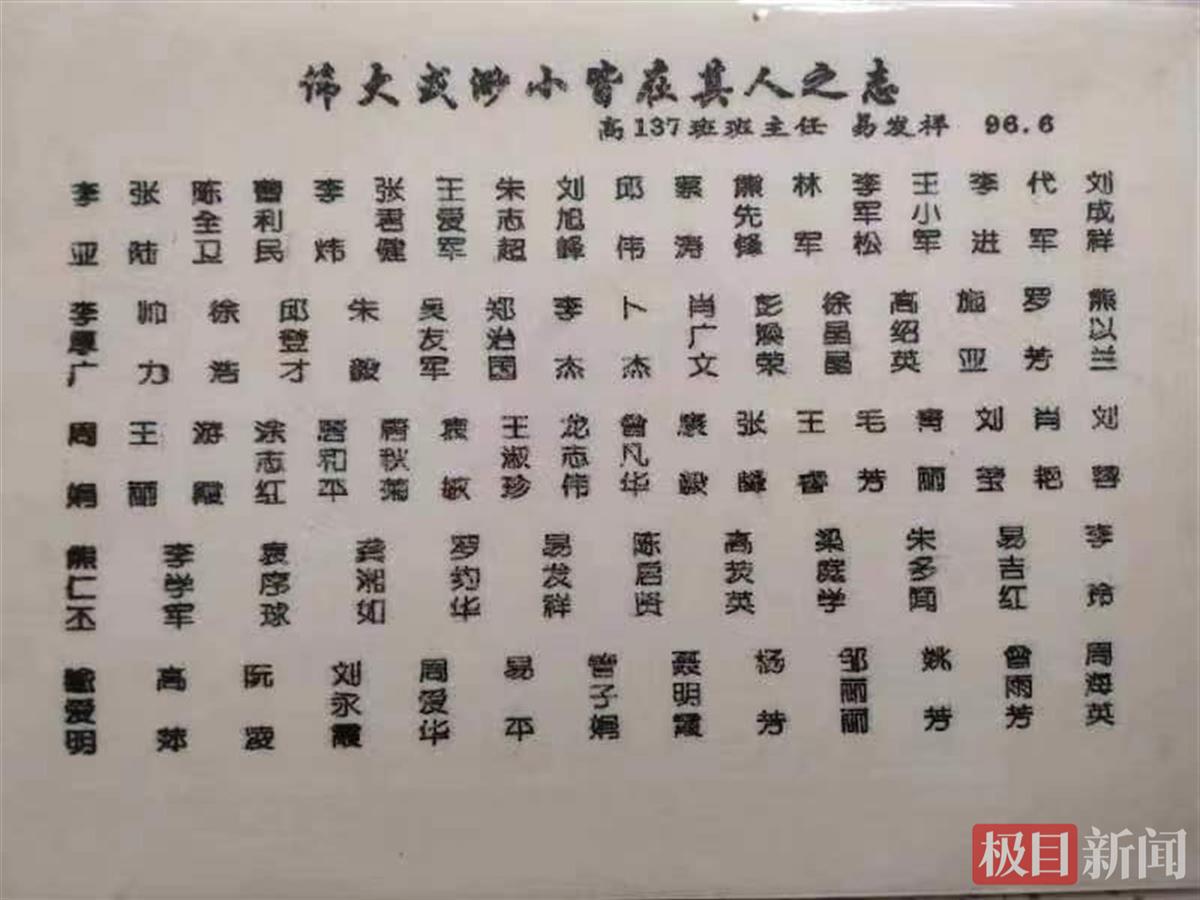 伟大或渺小皆在其人之志
高137班班主任 易发祥 96.6
李亚 张陆 陈全卫 曹利民 李炜 张君健 王爱军 朱志超 刘旭峰 邱伟 蔡涛 熊先锋 林军 李军松 王小军 李进 代军 刘成祥
李厚广 帅力 徐浩 邱登才 朱毅 吴友军 郑治国 李杰 卜杰 肖广文 彭焕荣 徐晶晶 高绍英 施亚 罗芳 熊以兰
周娟 王丽 游霞 涂志红 唐和平 唐秋菊 袁敏 王淑珍 龙志伟 曾凡华 毅 张峰 王睿 毛芳 青丽 刘莹 肖艳 刘蓉
熊仁丕 李学军 袁序球 龚湘如 罗约华 易发祥 陈启贤 高英 梁庭学 朱多闻 易吉红 李玲
爱明 高萍 阮凌 刘永霞 周爱华 易平 曾子娟 聂明霞 杨芳 邹丽丽 姚芳 曾雨芳 周海英
极目新闻